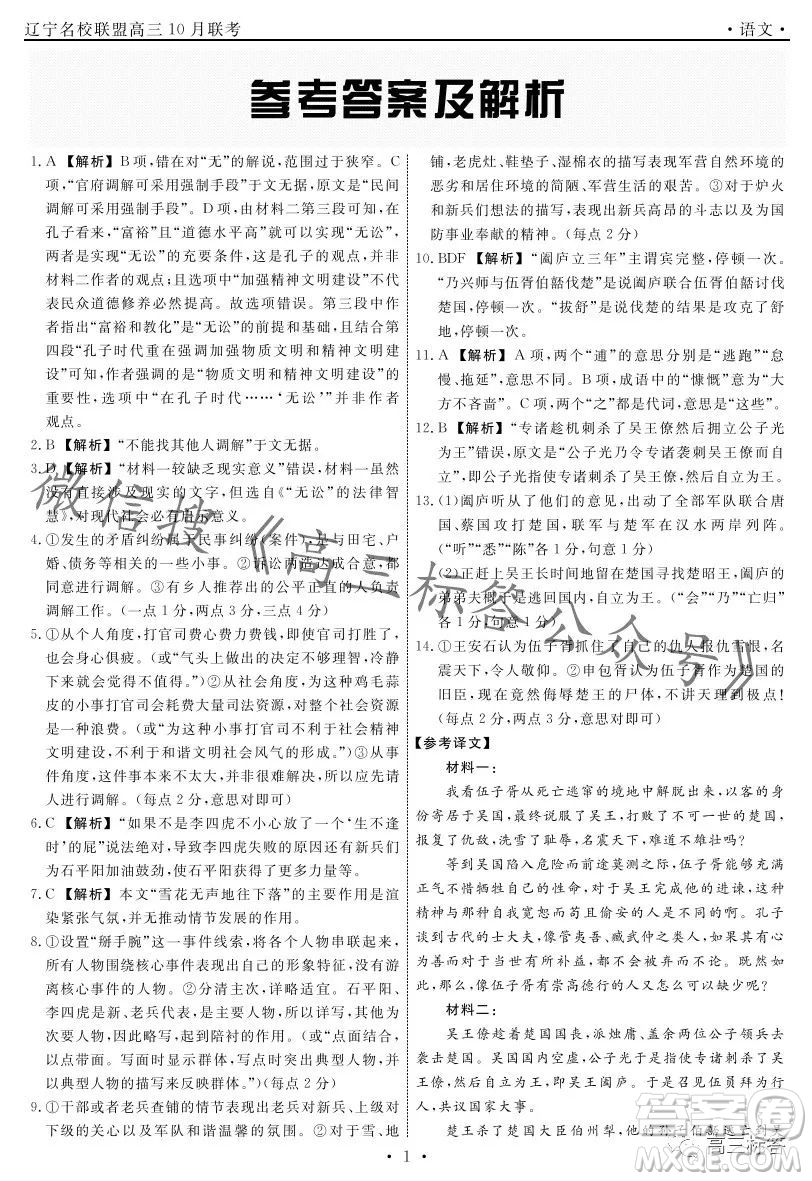 辽宁名校联盟高三10月联考
·语文·
参考答案及解析
1. A 【解析】B项，错在对“无”的解说，范围过于狭窄。C
项，“官府调解可采用强制手段”于文无据，原文是“民间
调解可采用强制手段”。D项，由材料二第三段可知，在
孔子看来，“富裕”且“道德水平高”就可以实现“无讼”，
两者是实现“无讼”的条件，这是孔子的观点，并非材料
二作者的观点；且选项中“加强精神文明建设”不代
表民众道德修养必然提高。故选项错误。第三段中作
者指出“富裕和教化”是“无讼”的前提和基础，且结合第
四段“孔子时代重在强调加强物质文明和精神文明
建设”可知，作者强调的是“物质文明和精神文明建设”
的重要性，选项中“孔子时代……‘无讼’”并非作者
观点。
2. B 【解析】“不能找其他人调解”于文无据。
3. D 【解析】“材料一较缺乏现实意义”错误，材料一虽然
没有直接涉及现实的文字，但选自《“无讼”的法律智
慧》，对现代社会必有启示意义。
4. ①发生的矛盾纠纷属于民事纠纷(案件)，是与田宅、户
婚、债务等相关的一些小事。②诉讼两造达成合意，都
同意进行调解。③有乡人推荐出的公平正直的人负责
调解工作。(一点1分，两点3分，三点4分)
5. ①从个人角度，打官司费心费力费钱，即使官司打胜了，
也会身心俱疲。(或“气头上做出的决定不够理智，
冷静后会觉得不值得。”)②从社会角度，为这种鸡毛蒜
皮的小事打官司会耗费大量司法资源，对整个社会资源
是一种浪费。(或“为这么小的事打官司不利于社会精神
文明建设，不利于和谐社会风气的形成。”)③从事
件角度，这件事本来不太大，并非不可协商解决，应请人
进行调解。(每点2分，意思对即可)
6. C 【解析】“如果不是李四虎不小心放了一个‘生不逢
时’的屁”说法绝对，导致李四虎失败的原因还有新兵们
为石平阳加油鼓劲，使石平阳增强了信心等。
7. C 【解析】本文“雪花无声地往下落”的主要作用是渲
染紧张气氛，并无推动情节发展的作用。
8. ①设置“掰手腕”这一事件线索，将各个人物串联起来，
所有人物围绕核心事件表现出自己的形象特征，没有游
离核心事件的人物。②主次分明，详略适宜。石平阳、
李四虎、老兵代表，是主要人物，所以详写，其他人物为
次要人物，起到陪衬的作用，所以略写。(或点面结合。
面的描写可以显示群体，点的描写可以突出典型人物，并
以典型人物的描写来反映群体。)(每点2分)
9. ①干部或者老兵查铺的情节表现出老兵对新兵、上级对
下级的关心以及军营和谐温馨的氛围。②对于雪、地
铺、老虎灶、鞋垫子、湿棉衣的描写表现军营自然环境的
恶劣和居住环境的简陋、军营生活的艰苦。③对于炉火
和新兵们想法的描写，表现出新兵高昂的斗志以及为国
防事业奉献的精神。(每点2分)
10. BDF 【解析】“阖庐立三年”主谓宾完整，停顿一次。
“乃兴师与伍胥伯嚭伐楚”是阖庐联合伍胥伯嚭讨伐
楚国，停顿一次。“拔舒”是伐楚的结果是攻克了舒
地，停顿一次。
11. A 【解析】A项，两个“逋”的意思分别是“逃跑”“怠
慢、拖延”，意思不同。B项，成语中的“慷慨”意思是“大
方不吝啬”。C项，两个“之”都是代词，意思是“到”。
12. B 【解析】“专诸趁机刺杀了吴王僚然后拥立公子光
为吴王”错误，原文是“公子光指使专诸袭刺吴王僚”，
是公子光指使专诸刺杀了吴王僚，然后自立为吴王。
13. (1)阖庐听从了他们的意见，出动了全部军队联合唐
国、蔡国攻打楚国，联军与楚军在汉水两岸列阵。
(“听”“悉”“陈”各1分，句意1分)
(2)正赶上吴王长时间地在楚国寻找楚昭王，阖庐的
弟弟夫概于是逃回国内，自立为王。(“会”“乃”“亡归”
各1分，句意1分)
14. ①王安石认为伍子胥抓住了自己的仇人报仇雪恨，名
震天下，令人敬仰。②申包胥认为伍子胥作为楚国的
旧臣，现在竟然侮辱楚王的尸体，不讲天理到极点！
(每点2分，两点3分，意思对即可)
【参考译文】
材料一：
我看伍子胥从死亡逃窜的境地中解脱出来，以客的身
份寄居于吴国，最终说服了吴王，打败了不可一世的楚国，
报复了仇敌，洗雪了耻辱，名震天下，难道不雄壮吗？
等到吴国陷入危险的时候，伍子胥能够慷慨激昂
义无反顾不惜牺牲自己的性命向吴王直言进谏，这种精
神与那些自我感觉良好而苟且偷安的人大不相同。孔子
所论的古代的士大夫，像管夷吾、臧武仲之类的人，如果
对于当世有所补益，都不会废弃他们，
既然这样，那么像伍子胥这样有崇高德行的人又怎么可以缺少呢？
材料二：
吴王僚趁着楚国国丧，派烛庸、盖余两位公子领兵去
袭击楚国。吴国国内空虚，公子光指使专诸刺杀了吴
王僚，自立为王，就是吴王阖庐。阖庐召回伍子胥任命行
人，共议国家大事。
楚王杀了楚国大臣伯州犁，他的孙子伯嚭逃亡到吴
·1·
微信搜《高三标答公众号》
答案圈
高三标答
MXQE.COM